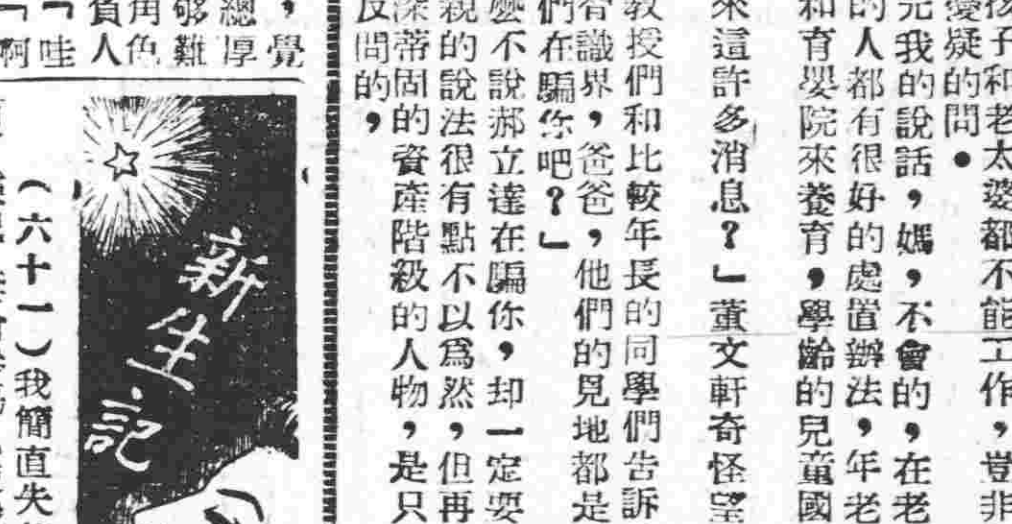 孩子和老太婆都不能工作，豈非
憂疑的問．
完我的說話，媽，不會的，在老
的人都有很好的處置辦法，年老
和育嬰院來養育，學齡的兒童國
來這許多消息？」董文軒奇怪望
教授們和比較年長的同學們告訴
智識界，爸爸，他們的見地都是
們在騙你吧？」
麼不說郝立達在騙你，却一定要
親的說法很有點不以爲然，但再
深蒂固的資產階級的人物，是只
反問的，
，覺
總厚
够難
角色
負人
「哇
「啊
新生記
（六十一）我簡直失